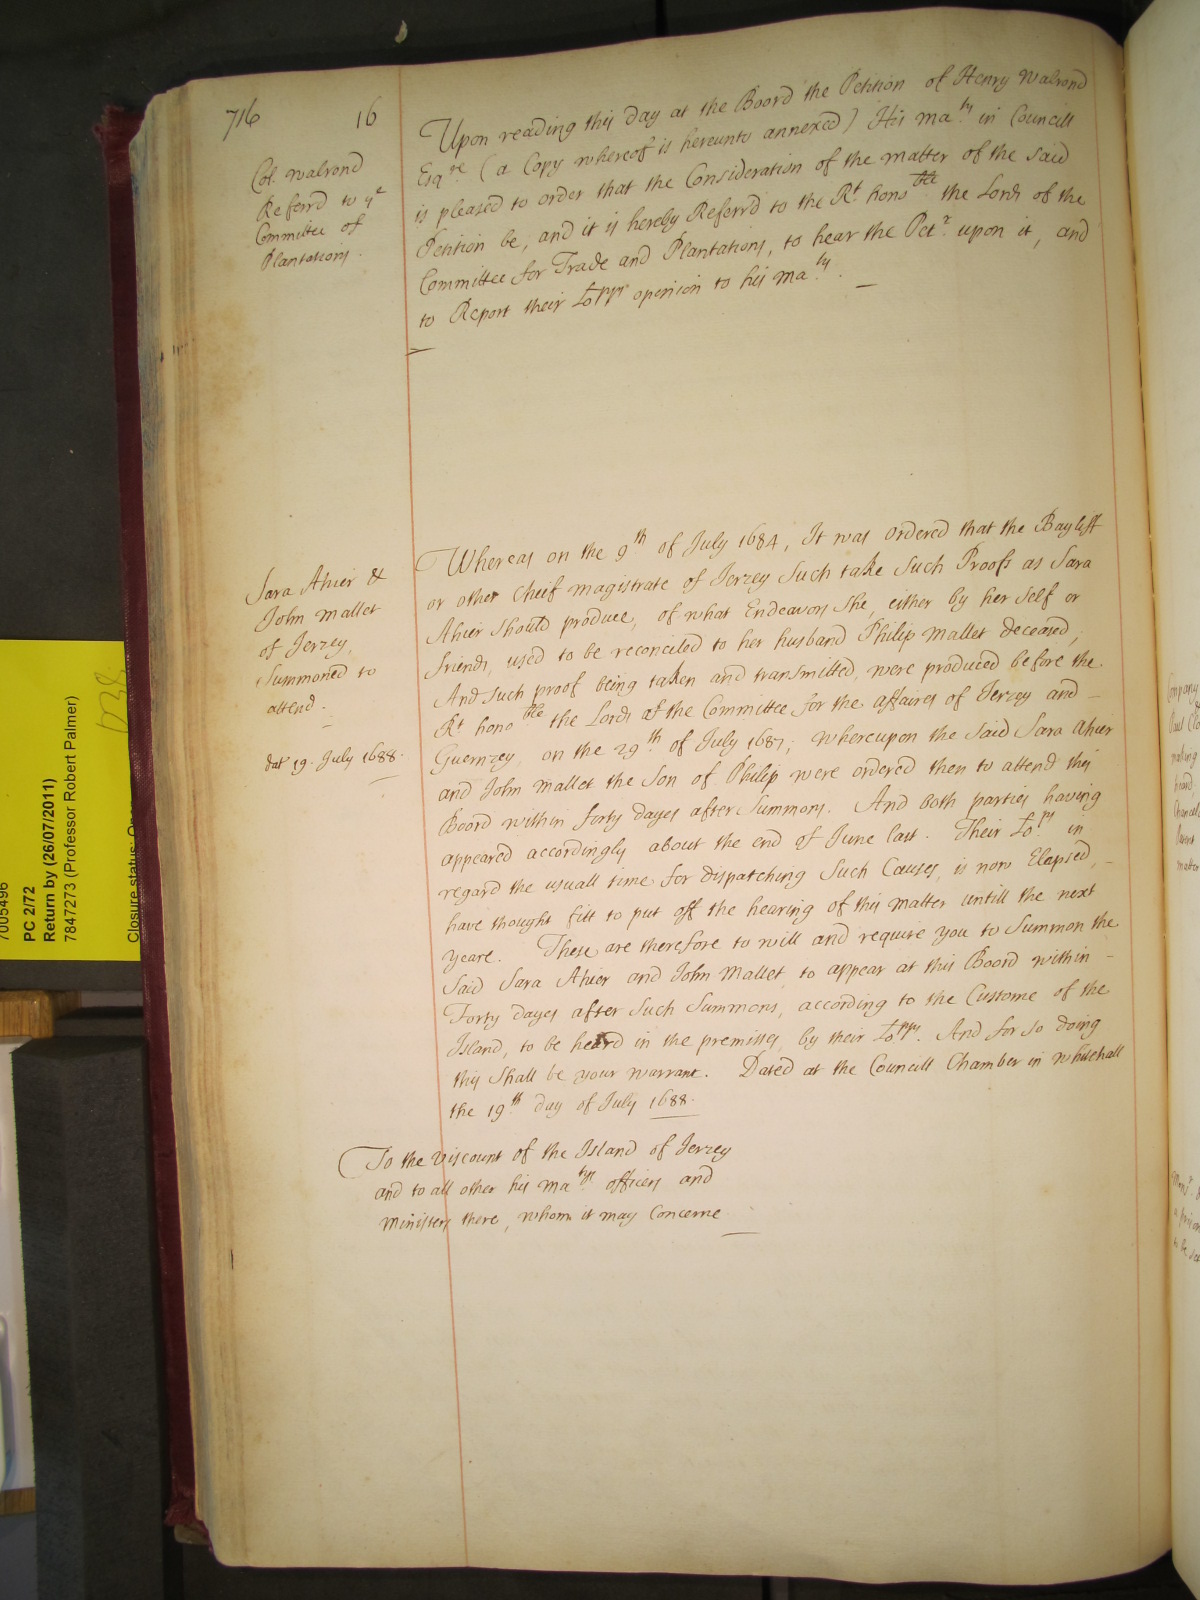 716 16
Col. Walrond
Referrd to ye
Committee of
Plantations.
Upon reading this day at the Board the Petition of Henry Walrond
Esqre (a Copy whereof is hereunto annexed) His Maty in Councill
is pleased to order that the Consideration of the matter of the said
Petition be, and it is hereby Referrd to the Rt honoble the Lords of the
Committee for Trade and Plantations, to hear the Petr upon it, and
to Report their Lopps opinion to his Maty.
Sara Ahier &
John Mallet
of Jerzey,
Summoned to
attend.
dat 19. July 1688.
Whereas on the 9th of July 1684, It was ordered that the Bayliff
or other Cheif magistrate of Jerzey Such take Such Proofs as Sara
Ahier should produce, of what Endeavors She, either by her self or
friends, used to be reconciled to her husband Philip Mallet deceased,
And Such proof being taken and transmitted, were produced before the
Rt honoble the Lords of the Committee for the affaires of Jerzey and
Guernzey, on the 29th of July 1687; Whereupon the said Sara Ahier
and John Mallet the Son of Philip were ordered then to attend this
Board within forty dayes after Summons. And both parties having
appeared accordingly about the end of June last. Their Lops in
regard the usuall time for dispatching Such Causes, is now Elapsed,
have thought fitt to put off the hearing of this matter untill the next
yeare. These are therefore to will and require you to Summon the
said Sara Ahier and John Mallet, to appear at this Board within
Forty dayes after such Summons, according to the Custome of the
Island, to be heard in the premisses, by their Lopps. And for so doing
this shall be your warrant. Dated at the Councill Chamber in Whitehall
the 19th day of July 1688.
To the Viscount of the Island of Jerzey
and to all other his Matys officers and
Ministers there, whom it may Concerne
PC 2/72
Return by (26/07/2011)
7847273 (Professor Robert Palmer)
Closure status: